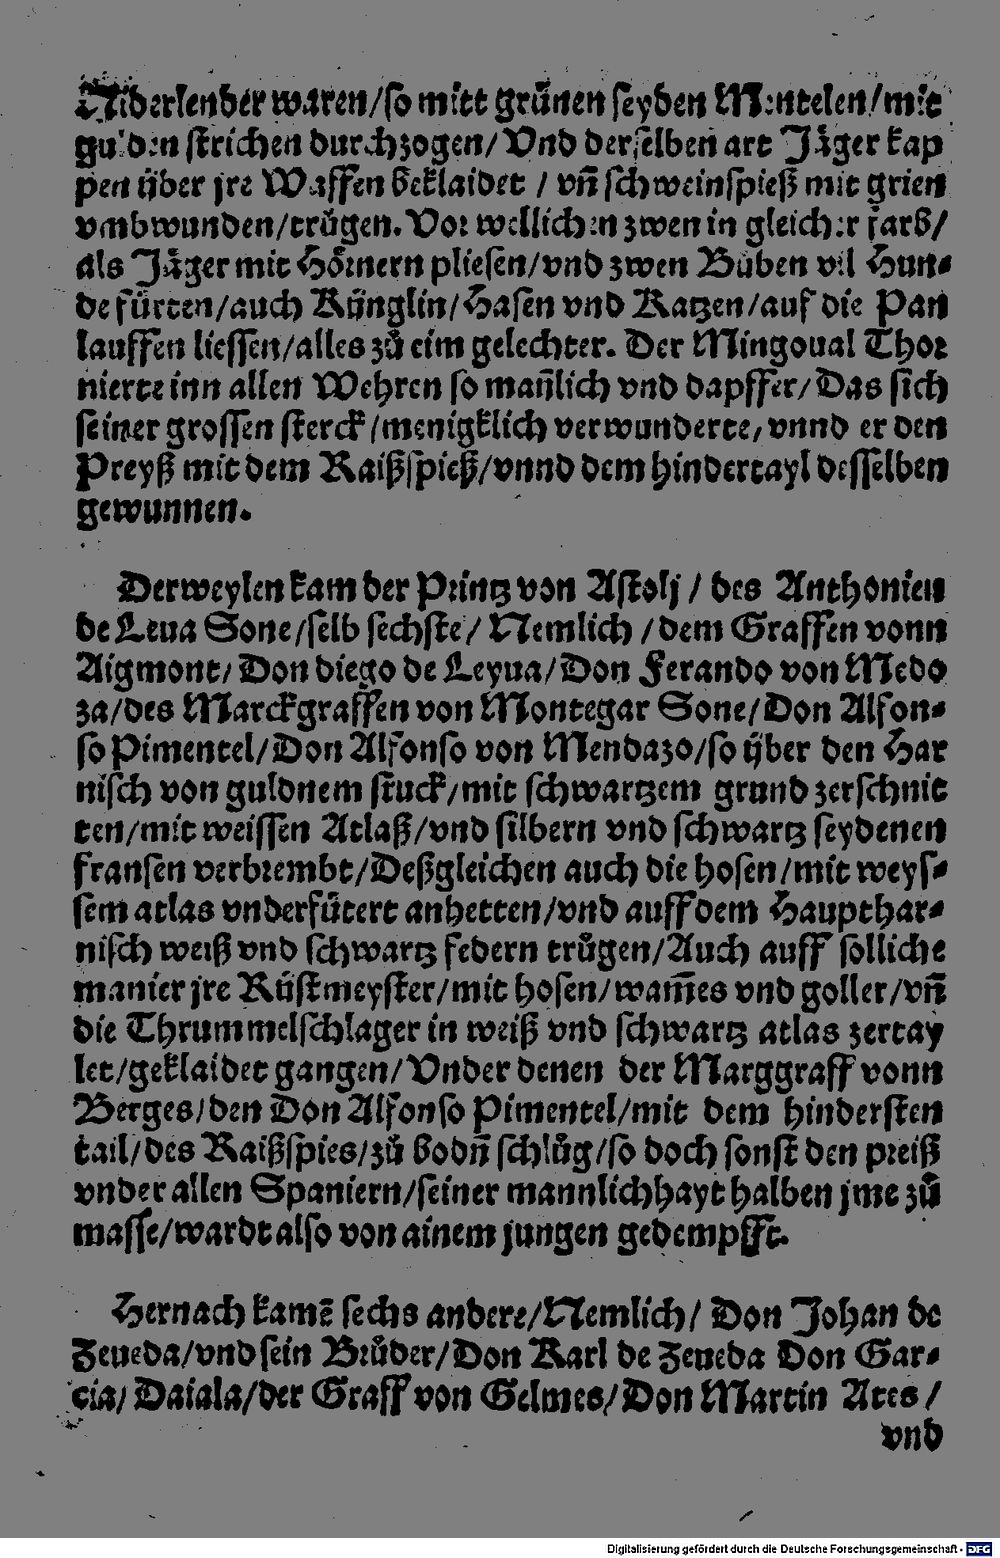 Niderlender waren/so mitt grünen seyden Mentelen/mit
gulden strichen durchzogen/ Vnd derselben art Jäger kap
pen über jre Waffen beklaidet / vñ schweinspieß mit grien
vmbwunden/trůgen. Vor wellichen zwen in gleicher farb/
als Jäger mit Hörnern pliesen/vnd zwen Bůben vil Hun⸗
de fürten/auch Künglin/Hasen vnd Katzen/auf die Pan
lauffen liessen/alles zů eim gelechter. Der Mingoual Thor
nierte inn allen Wehren so mañlich vnd dapffer/Das sich
seiner grossen sterck/menigklich verwunderte, vnnd er den
Preyß mit dem Raißspieß/vnnd dem hindertayl desselben
gewunnen.
Derweylen kam der Printz von Astolj / des Anthonien
de Leua Sone/selb sechste/ Nemlich /dem Graffen vonn
Aigmont/Don diego de Leyua/Don Ferando von Medo
za/des Marckgraffen von Montegar Sone/Don Alfon⸗
so Pimentel/Don Alfonso von Mendazo/so über den Har
nisch von guldnem stuck/mit schwartzem grund zerschnit
ten/mit weissen Atlaß/vnd silbern vnd schwartz seydenen
fransen verbrembt/Deßgleichen auch die hosen/mit weys⸗
sem atlas vnderfütert anhetten/vnd auff dem Haupthar⸗
nisch weiß vnd schwartz federn trůgen/Auch auff solliche
manier jre Rüstmeyster/mit hosen/wam̃es vnd goller/vñ
die Thrummelschlager in weiß vnd schwartz atlas zertay
let/geklaidet gangen/Vnder denen der Marggraff vonn
Berges/den Don Alfonso Pimentel/mit dem hindersten
tail/des Raißspies/zů bodñ schlůg/so doch sonst den preiß
vnder allen Spaniern/seiner mannlichhayt halben jme zů
masse/wardt also von ainem jungen gedempfft.
Hernach kamē sechs andere/Nemlich/ Don Johan de
Zeueda/vnd sein Brůder/Don Karl de Zeueda Don Gar⸗
cia/ Daiala/der Graff von Gelmes/Don Martin Ares /
vnd
Digitalisierung gefördert durch die Deutsche Forschungsgemeinschaft - DFG